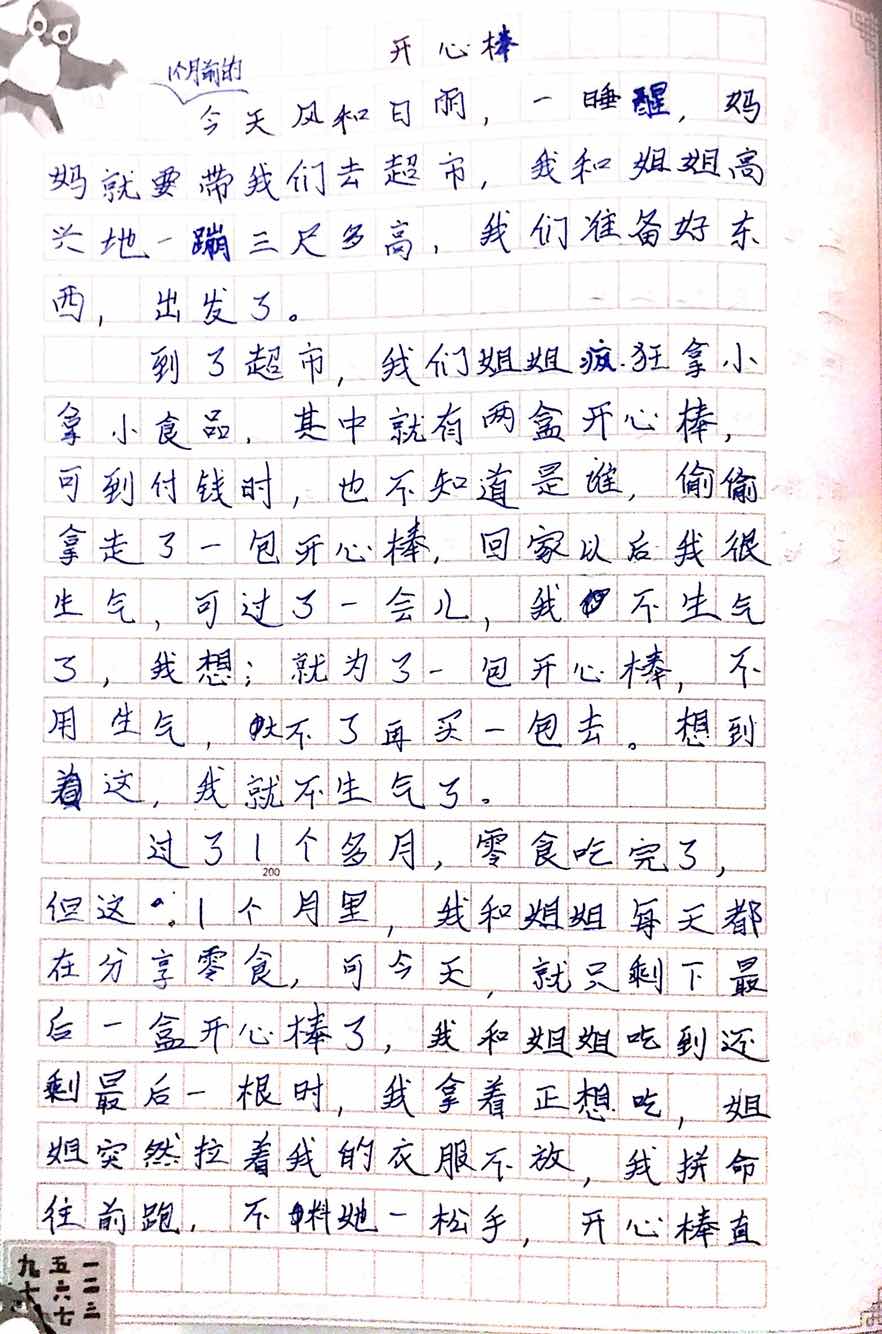 开心棒
1个月前的
今天风和日雨，一睡醒，妈
妈就要带我们去超市，我和姐姐高
兴地一蹦三尺多高，我们准备好东
西，出发了。
到了超市，我们姐姐疯狂拿小
拿小食品，其中就有两盒开心棒，
可到付钱时，也不知道是谁，偷偷
拿走了一包开心棒，回家以后我很
生气，可过了一会儿，我不生气
了，我想；就为了一包开心棒，不
用生气，大不了再买一包去。想到
着这，我就不生气了。
过了1个多月，零食吃完了，
200
但这1个月里，我和姐姐每天都
在分享零食，可今天，就只剩下最
后一盒开心棒了，我和姐姐吃到还
剩最后一根时，我拿着正想吃，姐
姐突然拉着我的衣服不放，我拼命
往前跑，不料她一松手，开心棒直
一二三
五六七
九十